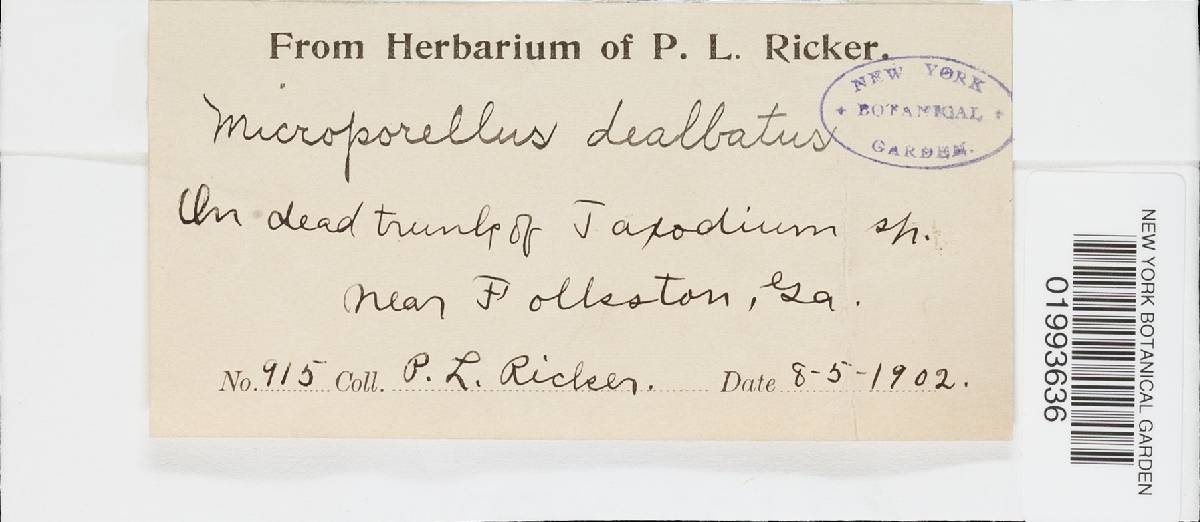 From Herbarium of P. L. Ricker.
NEW YORK
BOTANICAL
GARDEN.
Microporellus dealbatus
On dead trunk of Taxodium sp.
near Folkston, Ga.
No. 915 Coll. P. L. Ricker. Date 8-5-1902.
NEW YORK BOTANICAL GARDEN
01993636